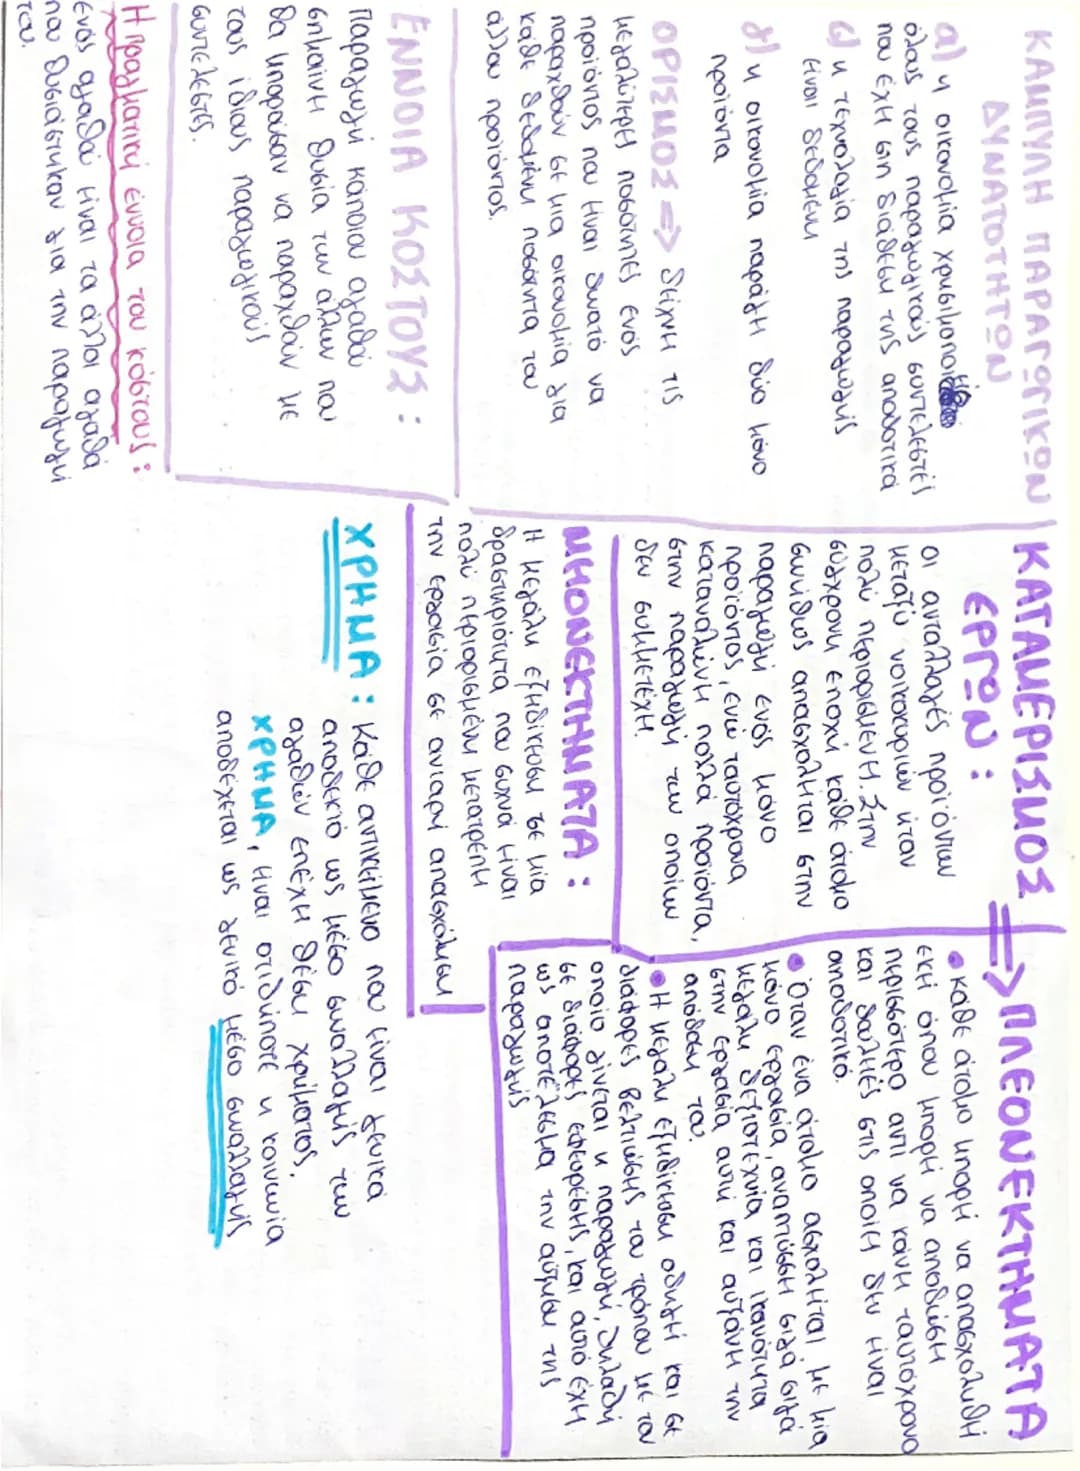 ΚΑΜΠΥΛΗ ΠΑΡΑΓΩΓΙΚΩΝ
ΔΥΝΑΤΟΤΗΤΩΝ
α) η οικονομία χρησιμοποιεί
όλους τους παραγωγικούς συντελεστές
που έχει στη διάθεση της αποδοτικά
β) η τεχνολογία της παραγωγής
είναι δεδομένη
γ) η οικονομία παράγει δύο μόνο
προϊόντα
ΟΡΙΣΜΟΣ => δείχνει τις
μεγαλύτερη ποσότητες ενός
προϊόντος που είναι δυνατό να
παραχθούν σε μια οικονομία για
κάθε δεδομένη ποσότητα του
άλλου προϊόντος.
ΕΝΝΟΙΑ ΚΟΣΤΟΥΣ :
Παραγωγή κάποιου αγαθού
σημαίνει θυσία των άλλων που
θα μπορούσαν να παραχθούν με
τους ίδιους παραγωγικούς
συντελεστές.
Η πραγματική έννοια του κόστους :
ενός αγαθού είναι τα άλλοι αγαθά
που θυσιάστηκαν για την παραγωγή
του.
ΚΑΤΑΜΕΡΙΣΜΟΣ
ΕΡΓΩΝ :
Οι ανταλλαγές προϊόντων
μεταξύ νοικοκυριών ήταν
πολύ περιορισμένη. Στην
σύγχρονη εποχή κάθε άτομο
συνήθως απασχολείται στην
παραγωγή ενός μόνο
προϊόντος, ενώ ταυτόχρονα
καταναλώνει πολλά προϊόντα,
στην παραγωγή των οποίων
δεν συμμετέχει.
ΜΕΙΟΝΕΚΤΗΜΑΤΑ :
Η μεγάλη εξειδίκευση σε μία
δραστηριότητα που συχνά είναι
πολύ περιορισμένη μετατρέπει
την εργασία σε ανιαρή απασχόληση
=> ΠΛΕΟΝΕΚΤΗΜΑΤΑ
• κάθε άτομο μπορεί να απασχοληθεί
εκεί όπου μπορεί να αποδώσει
περισσότερο αντί να κάνει ταυτόχρονα
και δουλειές στις οποίες δεν είναι
αποδοτικό.
• Όταν ένα άτομο ασχολείται με μία
μόνο εργασία, αναπτύσσει σιγά σιγά
μεγάλη δεξιοτεχνία και ικανότητα
στην εργασία αυτή και αυξάνει την
απόδοση του.
• Η μεγάλη εξειδίκευση οδηγεί και σε
διάφορες βελτιώσεις του τρόπου με τον
οποίο γίνεται η παραγωγή, δηλαδή
σε διάφορες εφευρέσεις, και αυτό έχει
ως αποτέλεσμα την αύξηση της
παραγωγής
ΧΡΗΜΑ : Κάθε αντικείμενο που είναι γενικά
αποδεκτό ως μέσο συναλλαγής των
αγαθών επέχει θέση χρήματος.
ΧΡΗΜΑ, είναι οτιδήποτε η κοινωνία
αποδέχεται ως γενικό μέσο συναλλαγής